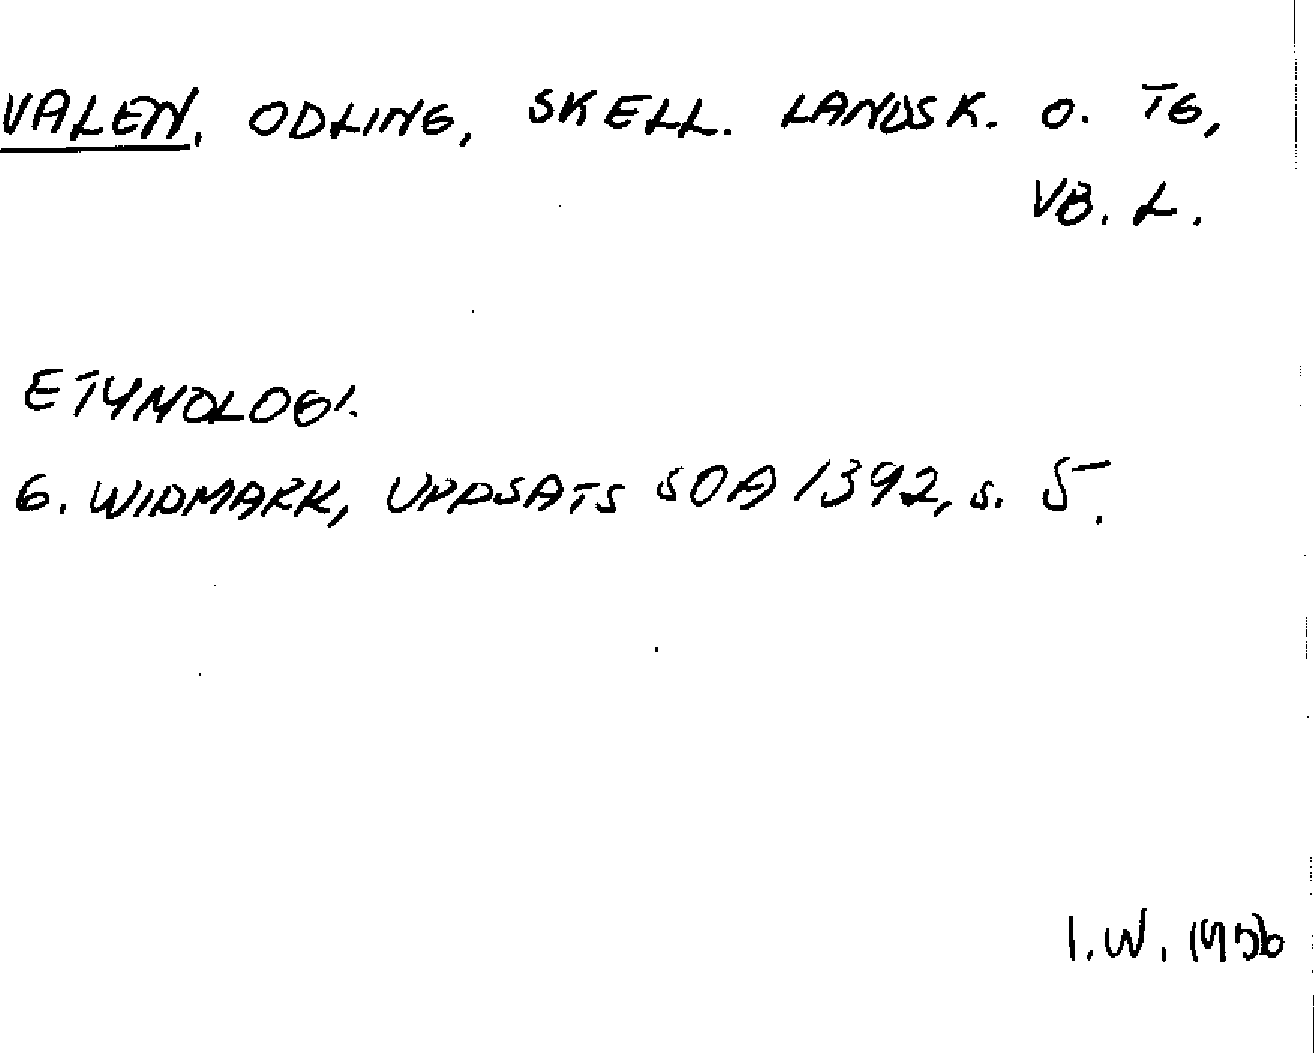 VALEN. ODLING, SKELL. LANDSK. O. TG,
VB. L.
ETYMOLOGI.
G. WIDMARK, UPPSATS SOA 1392, S. 5.
I.W. 1956